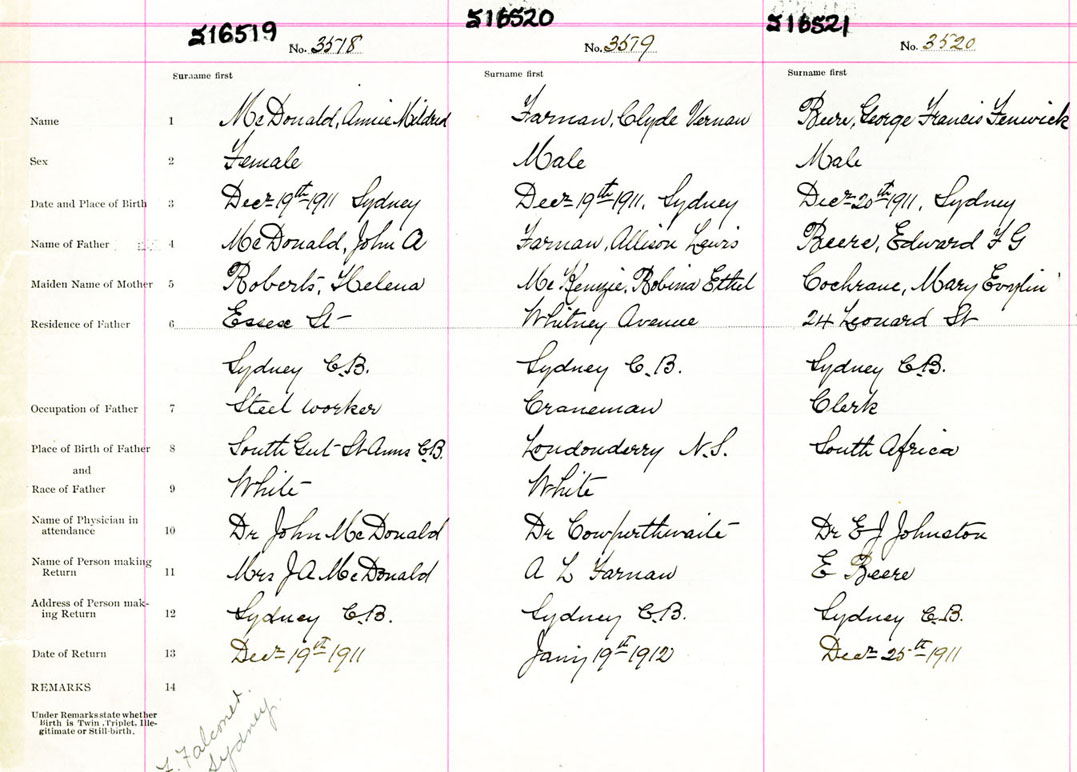 516519 516520 516521
No. 3578 No. 3579 No. 3520
Surname first Surname first Surname first
Name 1 McDonald, Annie Mildred Farnan, Clyde Vernan Beere, George Francis Fenwick
Sex 2 Female Male Male
Date and Place of Birth 3 Decr 19th 1911 Sydney Decr 19th 1911, Sydney Decr 20th 1911, Sydney
Name of Father 4 McDonald, John A Farnan, Allison Lewis Beere, Edward F G
Maiden Name of Mother 5 Roberts, Helena McKenzie, Robina Ethel Cochrane, Mary Evylin
Residence of Father 6 Essex St Whitney Avenue 24 Leonard St
Sydney C.B. Sydney C.B. Sydney C.B.
Occupation of Father 7 Steel worker Craneman Clerk
Place of Birth of Father 8 South Gut St Anns C.B. Londonderry N.S. South Africa
and
Race of Father 9 White White
Name of Physician in
attendance 10 Dr John McDonald Dr Cowperthwaite Dr E J Johnston
Name of Person making
Return 11 Mrs J A McDonald A L Farnan E Beere
Address of Person mak-
ing Return 12 Sydney C.B. Sydney C.B. Sydney C.B.
Date of Return 13 Decr 19th 1911 Jany 19th 1912 Decr 25th 1911
REMARKS 14
Under Remarks state whether
Birth is Twin, Triplet, Ille-
gitimate or Still-birth.
F. Falconer
Sydney.